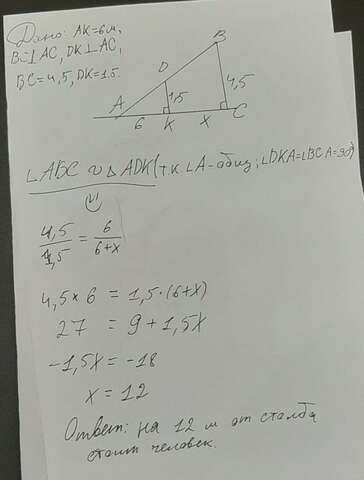 Дано: AK=6м,
BC⊥AC, DK⊥AC,
BC=4,5, DK=1.5.
B
D
4,5
1,5
A
6 K x C
∠ABC ∾ △ADK (т.к ∠A-общ; ∠DKA=∠BCA=90)
4,5/1,5 = 6/6+x
4,5*6 = 1,5·(6+x)
27 = 9+1,5x
-1,5x = -18
x = 12
Ответ: на 12 м от столба
стоит человек.